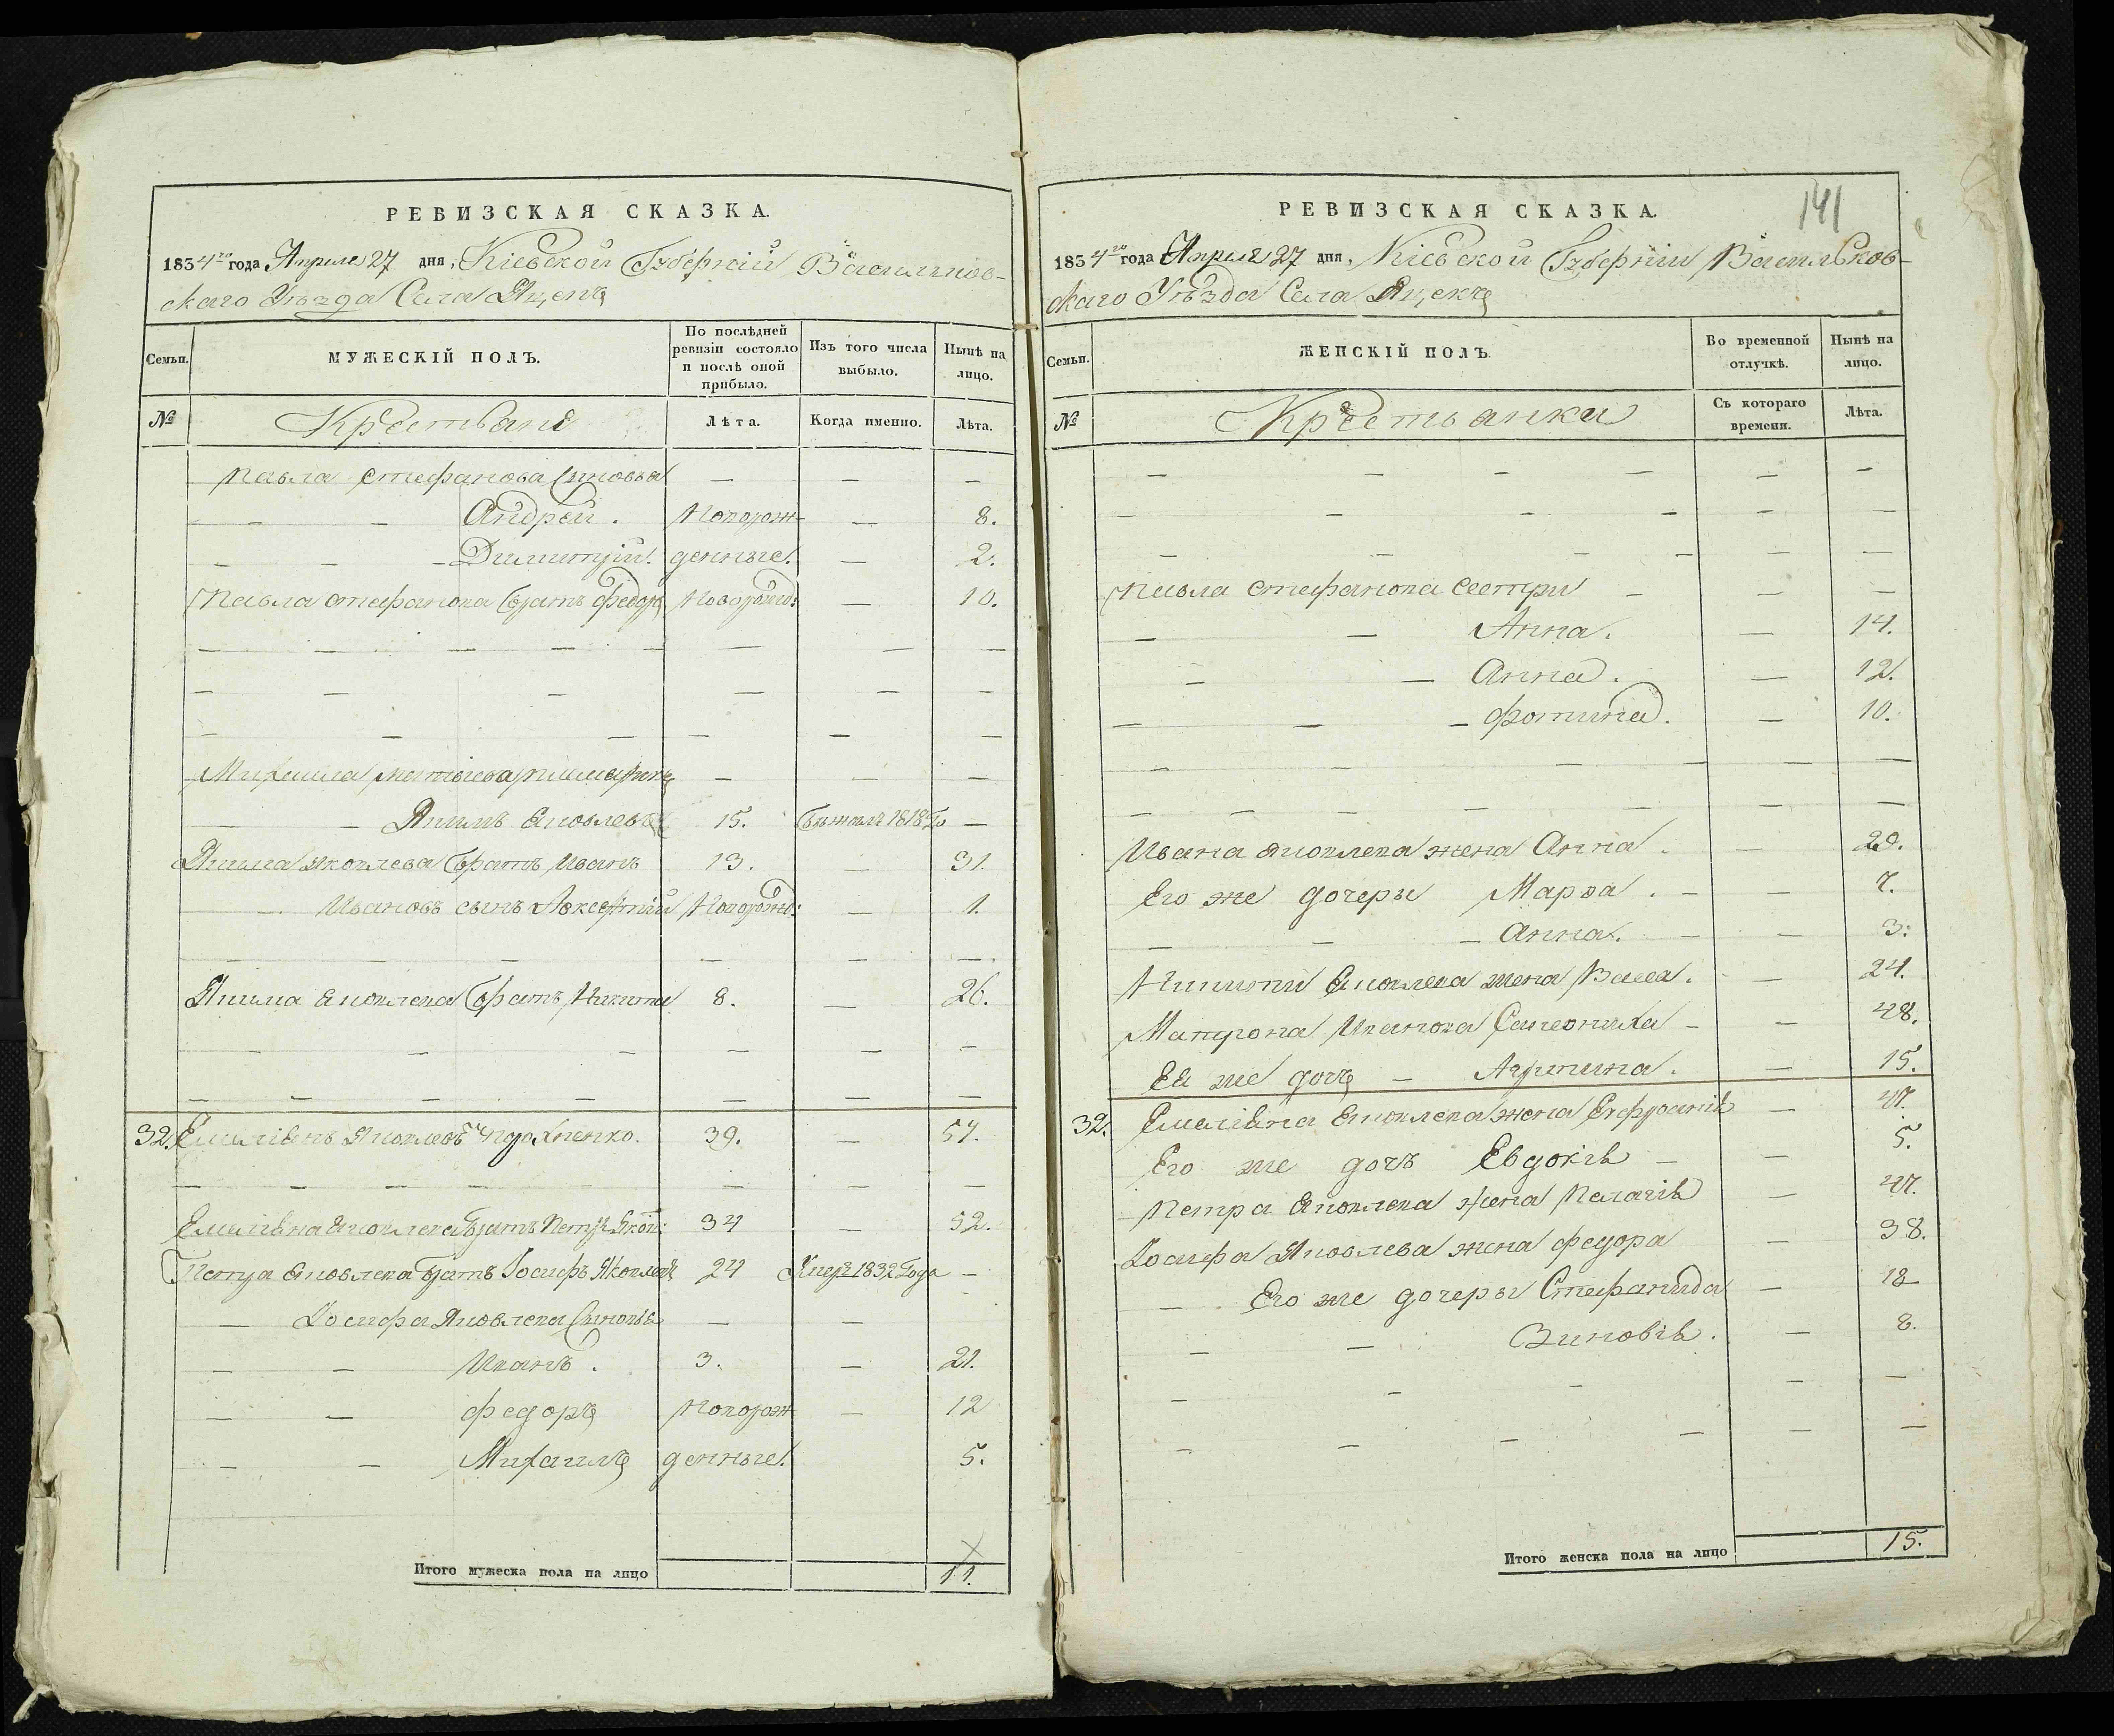 РЕВИЗСКАЯ СКАЗКА.
1834го года Апреля 27 дня, Кіевской Губерніи Васильков-
скаго Уѣзда Села Яцекъ
Семьи.
МУЖЕСКІЙ ПОЛЪ.
По послѣдней ревизіи состояло и послѣ оной прибыло.
Изъ того числа выбыло.
Нынѣ на лицо.
№
Крестьяне
Лѣта.
Когда именно.
Лѣта.
Павла Стефанова Сыновья — — —
— — Андрей. Новорож- — 8.
— — Димитрій. денные. — 2.
Павла Стефанова Братъ Федоръ Новорожд: — 10.
Михаила — — —
— — Якимъ Яковлевъ 15. Бежалъ 1818 Го —
Якима Яковлева Братъ Иванъ 13. — 31.
— Ивановъ сынъ Авксентій Новорожд: — 1.
Якима Яковлева Братъ Никита 8. — 26.
32. Емеліянъ Яковлевъ 39. — 57.
Емеліяна Яковлева Братъ Петръ Яков: 34 — 52.
Петра Яковлева Братъ Іосифъ Яковлевъ 24 Умеръ 1832 Года —
— Іосифа Яковлева Сыновья — —
— — Иванъ. 3. — 21.
— — Федоръ Новорож — 12
— — Михаилъ денные. 5.
Итого мужеска пола на лицо 11.
141
РЕВИЗСКАЯ СКАЗКА.
1834го года Апреля 27 дня, Кіевской Губерніи Васильков-
скаго Уѣзда Села Яцекъ
Семьи.
ЖЕНСКІЙ ПОЛЪ.
Во временной отлучкѣ.
Нынѣ на лицо.
№
Крестьянки
Съ котораго времени.
Лѣта.
Павла Стефанова Сестри — — —
— — Анна. — 14.
— — Анна. — 12.
— — Фотина. — 10.
Ивана Яковлева жена Анна. — 20.
Его же дочеры Марѳа. — — 7.
— — Анна. — — 3:
Никити Яковлева жена Васса. — 24.
Матрона Иванова — — 48.
Ея же дочъ — Агрипина. — 15.
32. Емеліяна Яковлева жена Евфросинія — 47.
Его же дочъ Евдокія — — 5.
Петра Яковлева жена Пелагія — 47.
Іосифа Яковлева жена Федора — 38.
— Его же дочеры Стефанида — 18
— — Зиновія. — 8.
Итого женска пола на лицо 15.